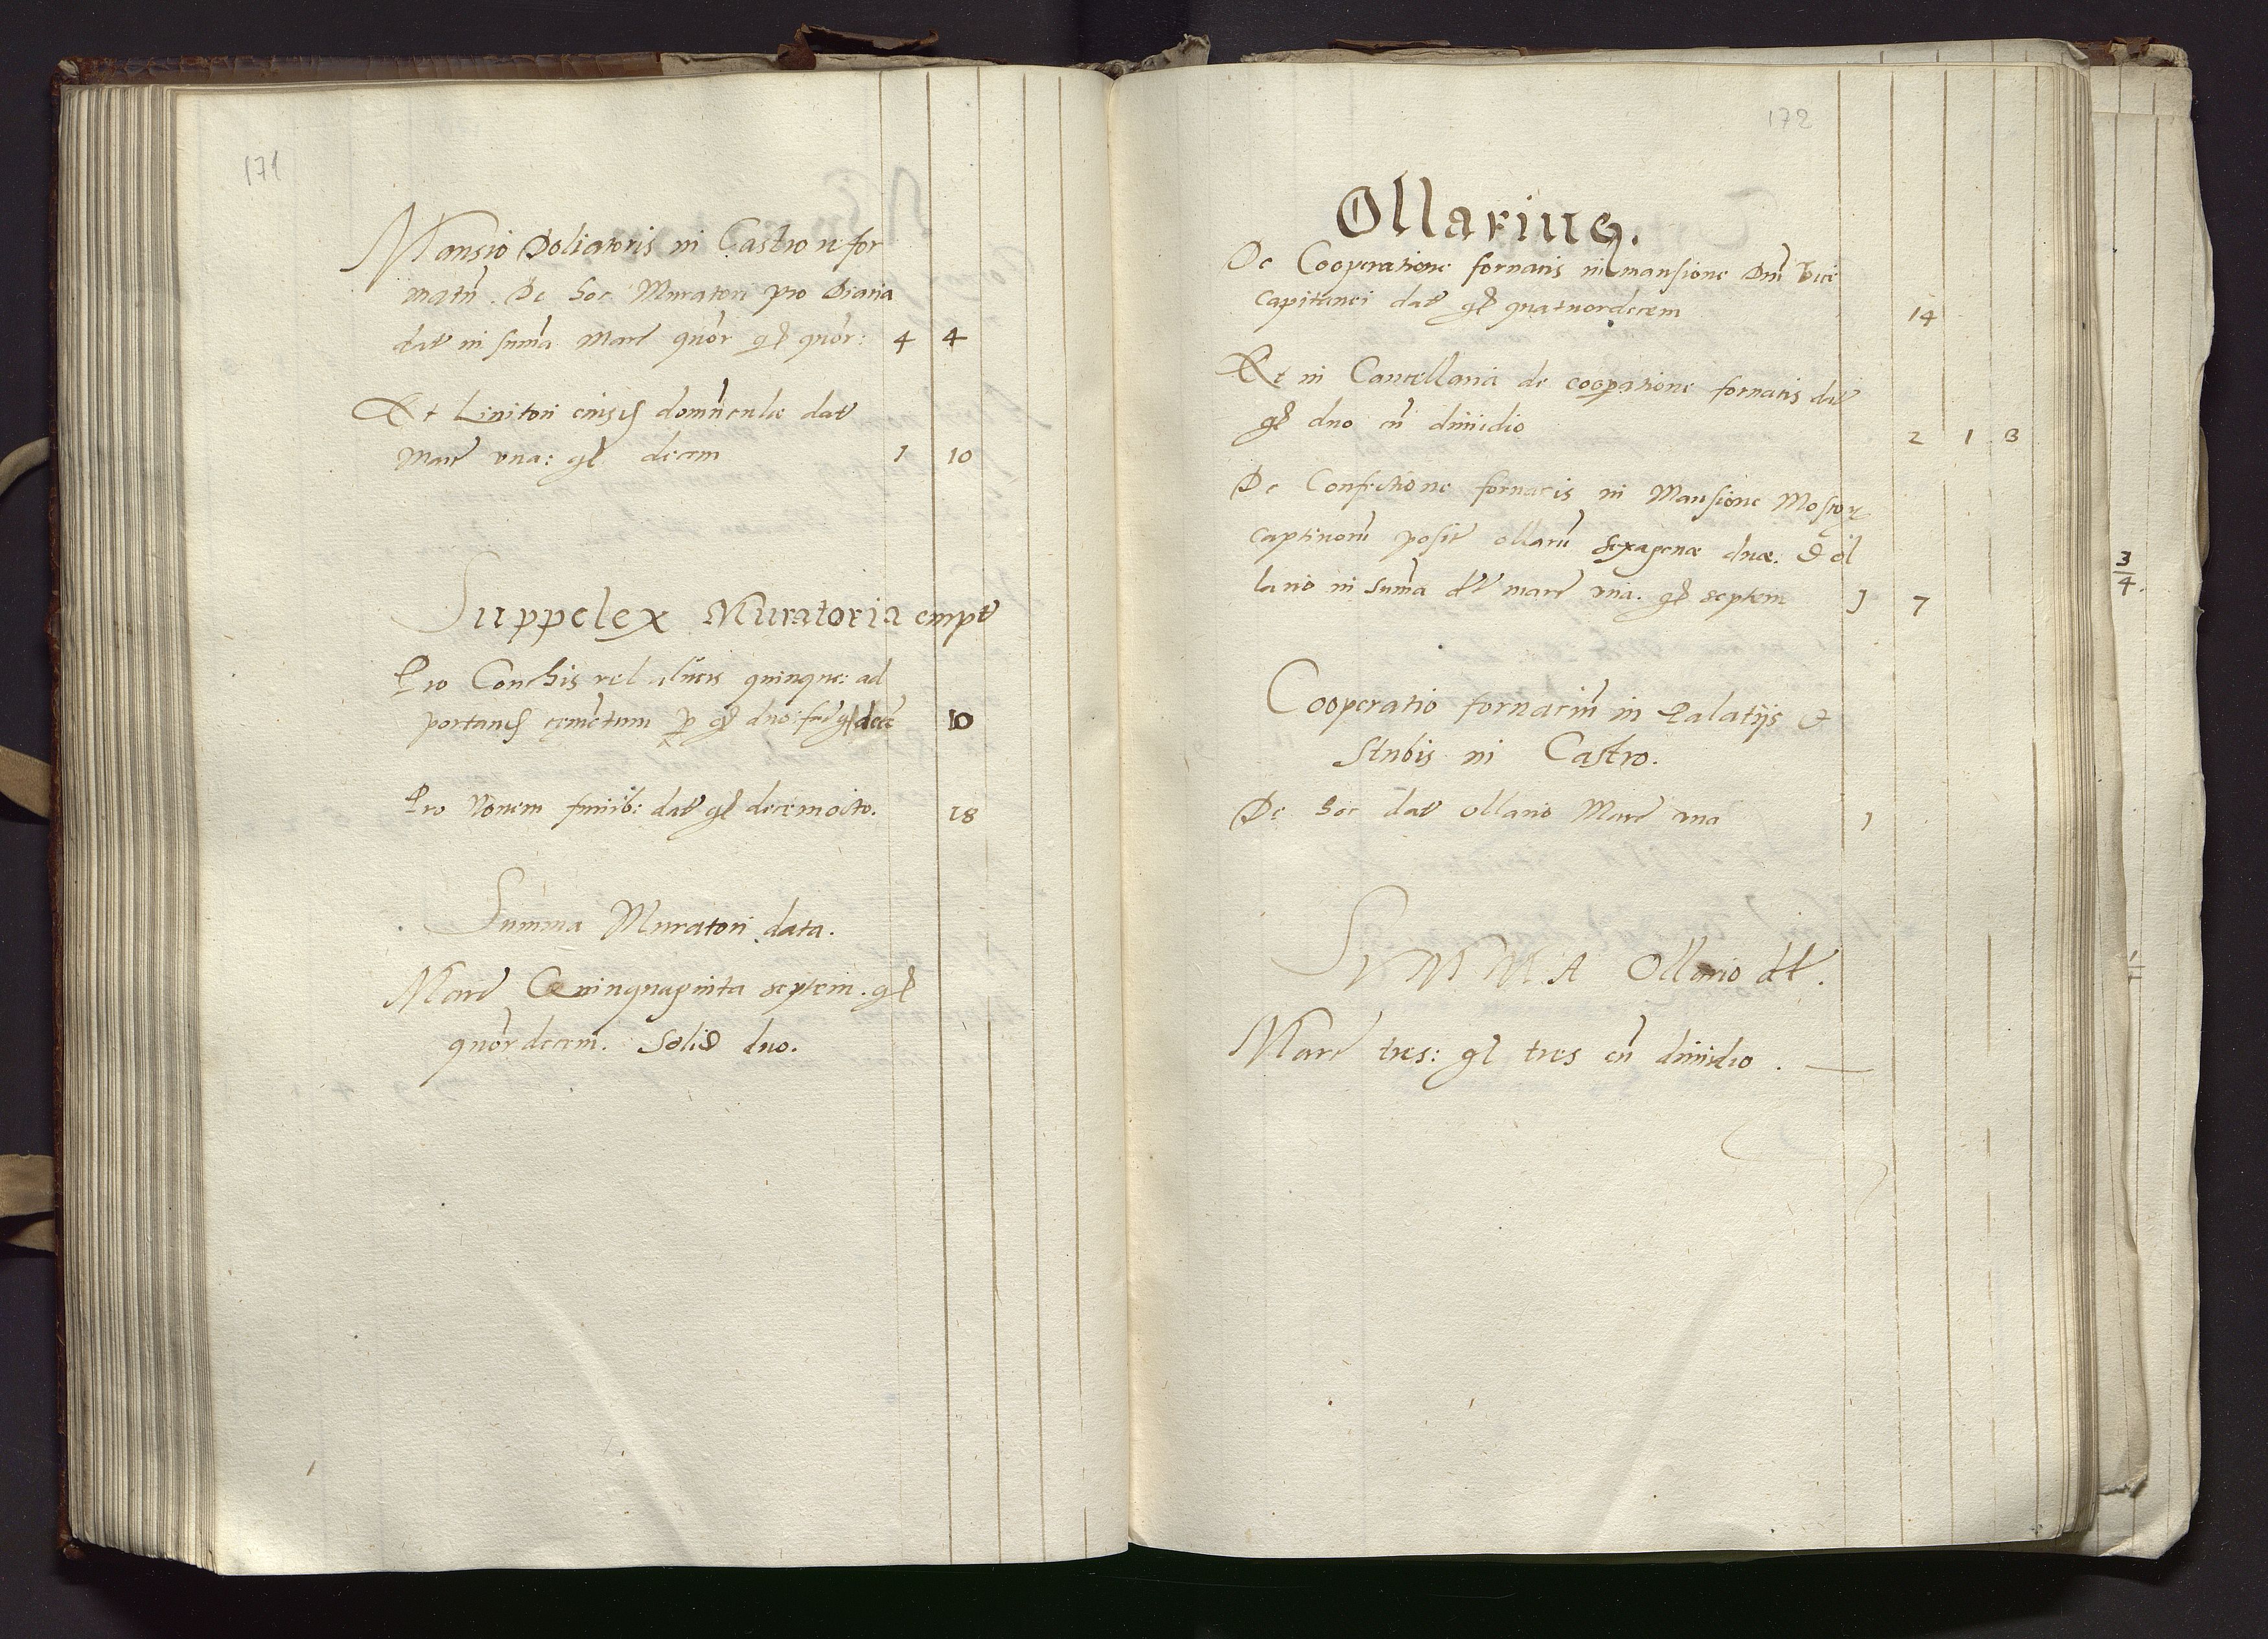 171
Mansio Doliatoris in Castro refor
matũ. De hoc Muratori pro Diaria
dat in summa Marc quor gř quor: 4 4
Et Linitori eiusd domunculæ dat
Marc vna: gř decem 1 10
Suppelex Muratoria empt
Pro Conchis vel quinque: ad
portand cementum per gř duo: fac gř dece 10
Pro Novem funib: dat gř decemocto. 18
Summa Muratori data.
Marc Quinquaginta septem. gř
quordecem. Solid duo.
172
Ollarius.
De Cooperatione fornacis in mansione Dni Vice
capitanei dat gř quatuordecem 14
Et in Cancellaria de coopatione fornacis dat
gř duo cũ dimidio 2 1 3
De Confectione fornacis in Mansione Moscov
captivorũ posit ollarũ sexagenæ duæ. Et ol
lario in summa dt marc vna. gř septem 1 7
Cooperatio fornaciũ in Palatijs et
Stubis in Castro.
De hoc dat ollario Marc vna 1
SVMMA Ollario dt.
Marc tres: gř tres cũ dimidio.
3/4.